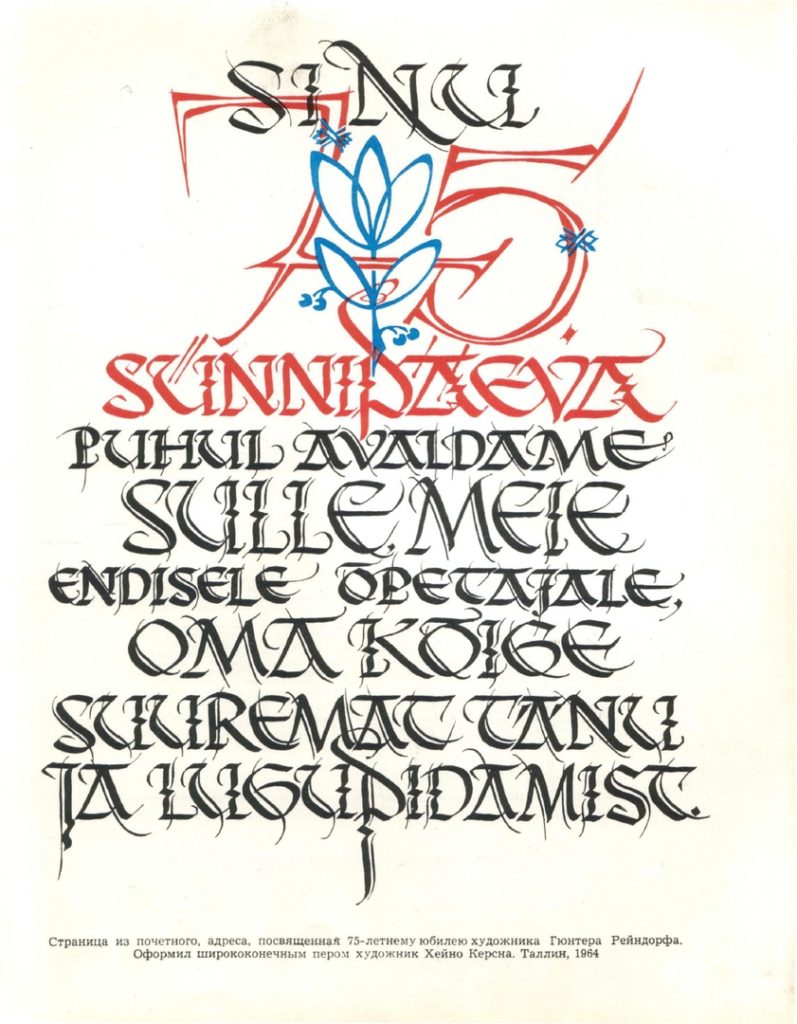 SINU
75.
SÜNNIPÄEVA
PUHUL AVALDAME
SULLE, MEIE
ENDISELE ÕPETAJALE,
OMA KÕIGE
SUUREMAT TÄNU
JA LUGUPIDAMIST.
Страница из почетного, адреса, посвященная 75-летнему юбилею художника Гюнтера Рейндорфа.
Оформил ширококонечным пером художник Хейно Керсна. Таллин, 1964